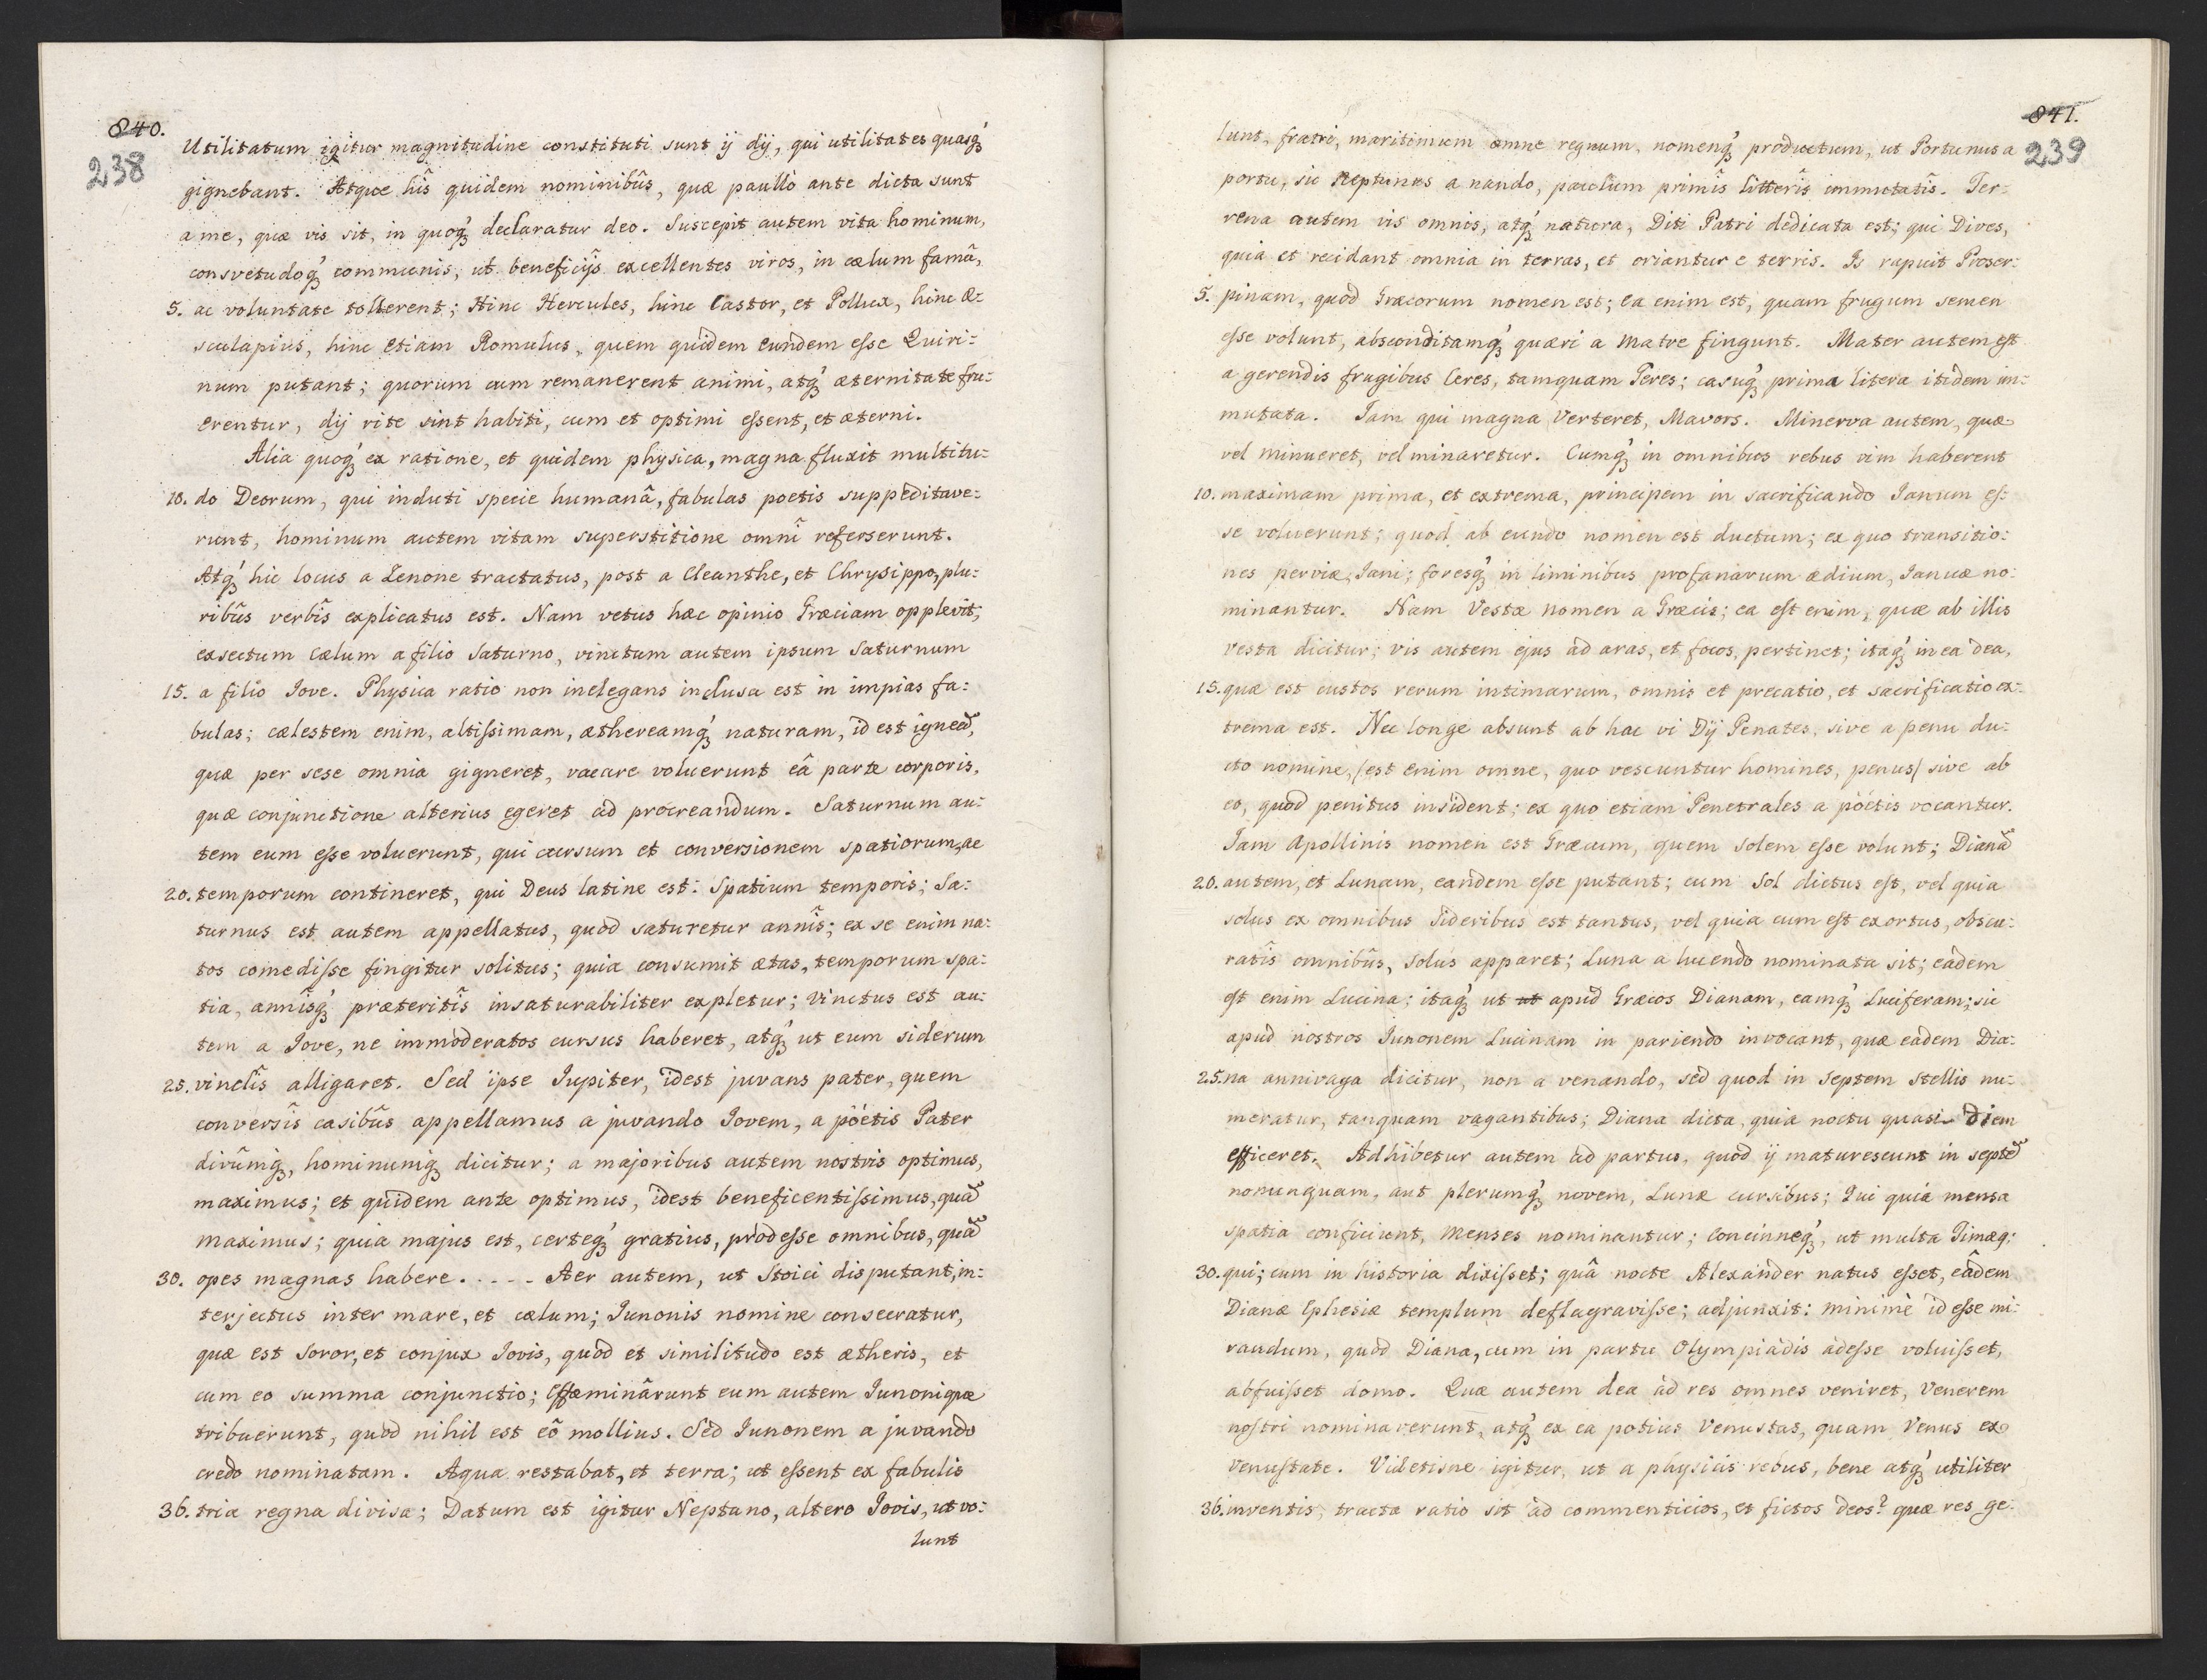 840.
238
Utilitatum igitur magnitudine constituti sunt ij dij, qui utilitates quasq́
gignebant. Atque hîs quidem nominibûs, quæ paullò ante dicta sunt
a me, quæ vis sit, in quoq́ declaratur deo. Suscepit autem vita hominum,
consvetudoq́ communis, ut beneficijs excellentes viros, in cælum famâ,
5. ac voluntate tollerent; Hinc Hercules, hinc Castor, et Pollux, hinc Æ:
sculapius, hinc etiam Romulus, quem quidem eundem esse Quiri:
num putant; quorum cum remanerent animi, atq́ æternitate fru:
erentur, dij rite sint habiti, cum et optimi essent, et æterni.
Alia quoq́ ex ratione, et quidem physica, magna fluxit multitu:
10. do Deorum, qui induti specie humanâ, fabulas poetis suppeditave:
runt, hominum autem vitam superstitione omnî referserunt.
Atq́ hic locus a Zenone tractatus, post a Cleanthe, et Chrysippo, plu:
ribûs verbîs explicatus est. Nam vetus hæc opinio Græciam opplevit;
exsectum Cælum a filio Saturno, vinctum autem ipsum Saturnum
15. a filio Iove. Physica ratio non inelegans inclusa est in impias fa:
bulas; cælestem enim, altissimam, æthereamq́ naturam, id est igneã,
quæ per sese omnia gigneret, vacare voluerunt eâ parte corporis,
quæ conjunctione alterius egeret ad procreandum. Saturnum au:
tem eum esse voluerunt, qui cursum et conversionem spatiorum, ac
20. temporum contineret, qui Deus latine est: Spatium temporis; Sa:
turnus est autem appellatus, quòd saturetur annîs; ex se enim na:
tos comedisse fingitur solitus; quia consumit ætas, temporum spa:
tia, annîsq́ præteritîs insaturabiliter expletur; Vinctus est au:
tem a Jove, ne immoderatos cursus haberet, atq́ ut eum siderum
25. vinclîs alligaret. Sed ipse Iupiter, idest juvans pater, quem
conversîs casibûs appellamus a juvando Iovem, a pöétis Pater
divûmq́, hominumq́ dicitur; a majoribus autem nostris optimus,
maximus; et quidem ante optimus, idest beneficentissimus, quã
maximus; quia majus est, certeq́ gratius, prodesse omnibus, quã
30. opes magnas habere. . . . . Aer autem, ut Stoici disputant, in:
terjectus inter mare, et cælum; Junonis nomine consecratur,
quæ est soror, et conjux Jovis, quòd et similitudo est ætheris, et
cum eo summa conjunctio; Effæminârunt eum autem Iunoniquæ
tribuerunt, quòd nihil est eô mollius. Sed Iunonem a juvando
credo nominatam. Aqua restabat, et terra; ut essent ex fabulis
36. tria regna divisa; Datum est igitur Neptuno, altero Iovis, ut vo:
lunt
841.
239
lunt, fratri, maritimum omne regnum, nomenq́ productum, ut Portunus a
portu, sic Neptunus a nando, paulum primîs litterîs immutatîs. Ter:
rena autem vis omnis, atq́ natura, Diti Patri dedicata est; qui Dives,
quia et recidant omnia in terras, et oriantur e terris. Is rapuit Proser:
5. pinam, quòd Græcorum nomen est; Ea enim est, quam frugum semen
esse volunt, absconditamq́ quæri a Matre fingunt. Mater autem est
a gerendis frugibus Ceres, tamquam Geres; casuq́ prima litera itidem im:
mutata. Iam qui magna Verteret, Mavors. Minerva autem, quæ
vel minueret, vel minaretur. Cumq́ in omnibus rebus vim haberent
10. maximam prima, et extrema, principem in sacrificando Ianum es:
se voluerunt; quod ab eundo nomen est ductum; ex quo transitio:
nes perviæ, Iani; foresq́ in liminibus profanarum ædium, Ianuæ no:
minantur. Nam Vestæ nomen a Græcis; ea est enim, quæ ab illis
Vesta dicitur; vis autem ejus ad aras, et focos, pertinet; itaq́ in ea dea,
15. quæ est custos rerum intimarum, omnis et precatio, et sacrificatio ex:
trema est. Nec longe absunt ab hac vi Dij Penates, sive a penu du:
cto nomine, /est enim omne, quo vescuntur homines, penus/ sive ab
eo, quòd penitus insident; ex quo etiam Penetrales a pöétis vocantur.
Iam Apollinis nomen est Græcum, quem Solem esse volunt; Dianã
20. autem, et Lunam, eandem esse putant; cum Sol dictus est, vel quia
solus ex omnibus Sideribus est tantus, vel quia cum est exortus, obscu:
ratîs omnibûs, solus apparet; Luna a lucendo nominata sit; eadem
est enim Lucina; itaq́ ut ut apud Græcos Dianam, eamq́ Luciferam; sic
apud nostros Junonem Lucinam in pariendo invocant, quæ eadem Dia:
25. na annivaga dicitur, non a venando, sed quod in septem stellis nu:
meratur, tanquam vagantibus; Diana dicta, quia noctu quasi diem
efficeret. Adhibetur autem ad partus, quòd ij maturescunt in septẽ
nonunquam, aut plerumq́ novem, Lunæ cursibus; Qui quia mensa
spatia conficiunt, Menses nominantur; Concinneq́, ut multa Timæg:
30. qui; cum in historia dixisset; quâ nocte Alexander natus esset, eâdem
Dianæ Ephesiæ templum deflagravisse; adjunxit: minimè id esse mi:
randum, quòd Diana, cum in partu Olympiadis adesse voluisset,
abfuisset domo. Quæ autem dea ad res omnes veniret, Venerem
nostri nominaverunt, atq́ ex ea potius Venustas, quam Venus ex
venustate. Videtisne igitur, ut a physicis rebus, bene atq́ utiliter
36. inventis, tracta ratio sit ad commenticios, et fictos deos? quæ res ge: